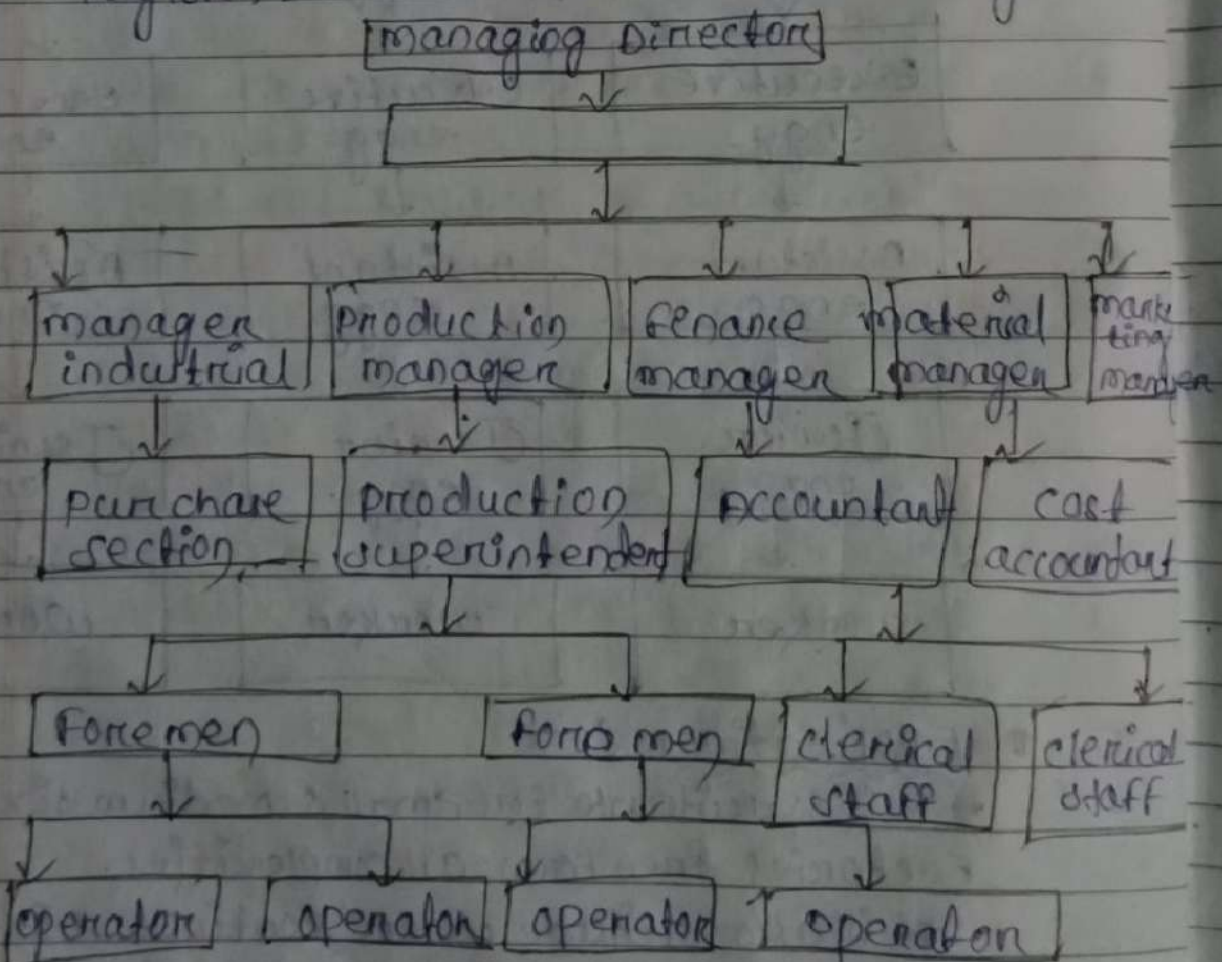 managing Director
manager
industrial
production
manager
fenance
manager
material
manager
marke
ting
manager
purchase
section
production
superintendent
Accountant
cost
accountant
Foremen
foremen
clerical
staff
clerical
staff
operator
operator
operator
operator